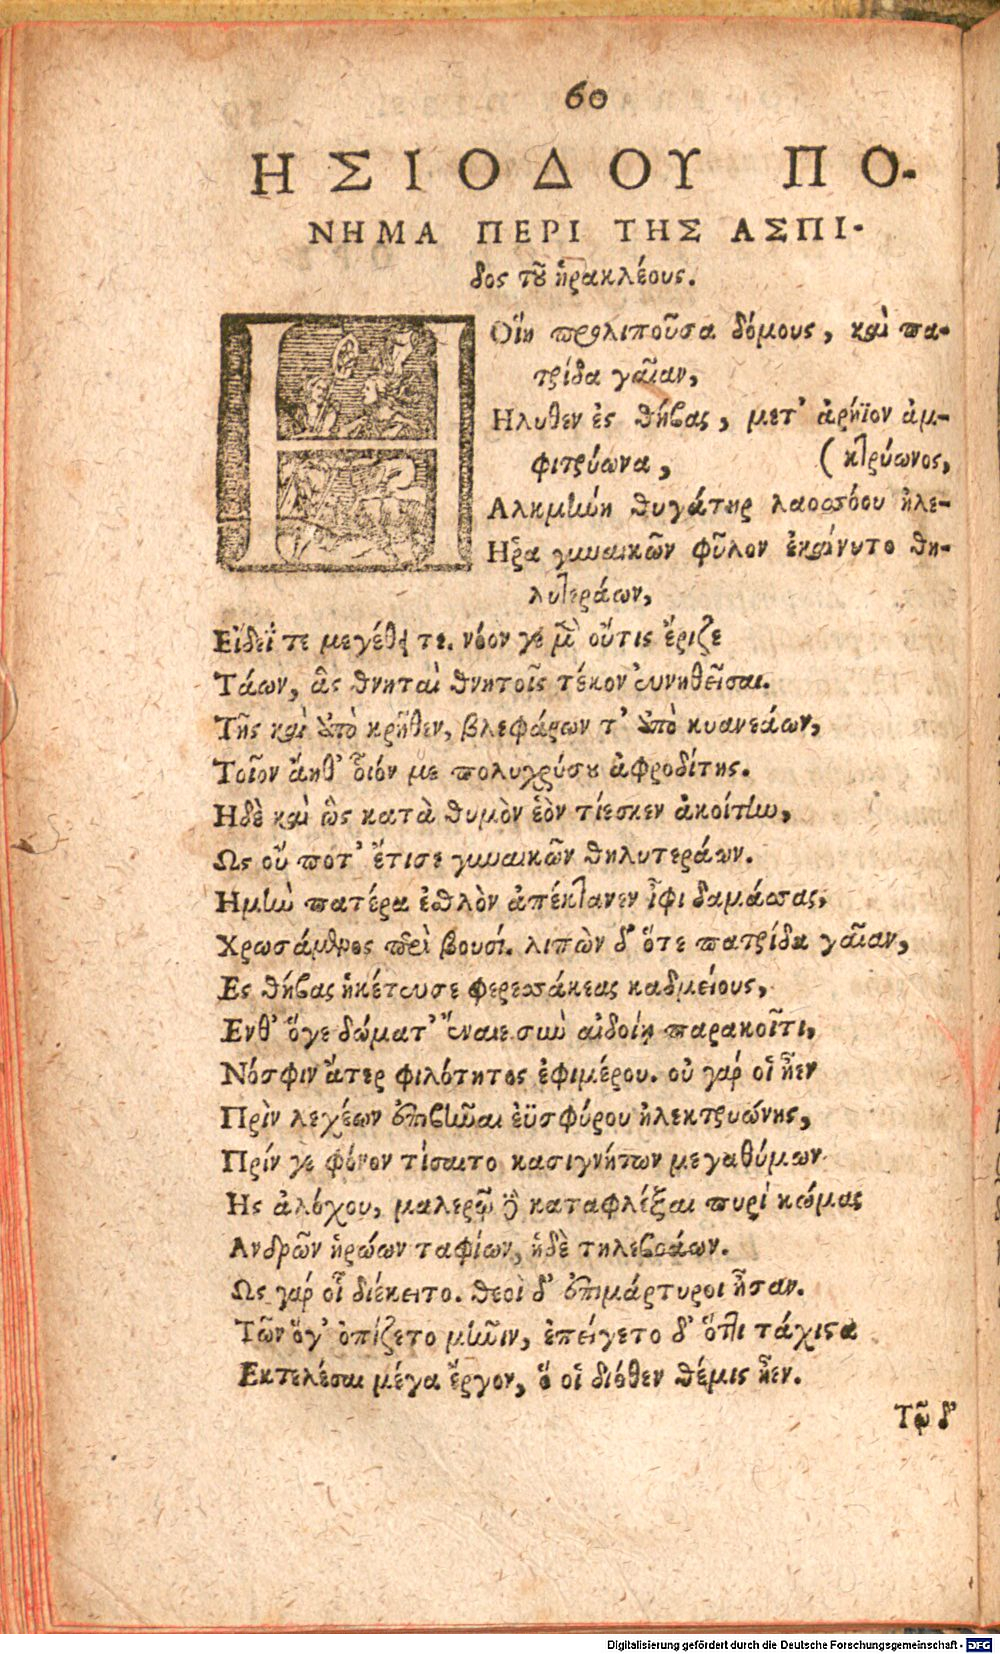 60
ΗΣΙΟΔΟΥ ΠΟ-
ΝΗΜΑ ΠΕΡΙ ΤΗΣ ΑΣΠΙ-
δος τοῦ ἡρακλέους.
Η Οἵη προλιποῦσα δόμους, καὶ πα-
τρίδα γαῖαν,
Ηλυθεν ἐς θήβας, μετ' ἀρήϊον ἀμ-
φιτρύωνα, (κτρύωνος,
Αλκμήνη θυγάτηρ λαοσσόου ἠλε-
Ηῥα γυναικῶν φῦλον ἐκαίνυτο θη-
λυτεράων,
Εἴδεΐ τε μεγέθει τε. νόον γε μὲν οὔτις ἔριζε
Τάων, ἃς θνηταὶ θνητοῖς τέκον εὐνηθεῖσαι.
Τῆς καὶ ἀπὸ κρῆθεν, βλεφάρων τ' ἀπὸ κυανεάων,
Τοῖον ἄηθ' οἷόν με πολυχρύσου ἀφροδίτης.
Ηδὲ καὶ ὣς κατὰ θυμὸν ἑὸν τίεσκεν ἀκοίτην,
Ως οὔ ποτ' ἔτισε γυναικῶν θηλυτεράων.
Ημὴν πατέρα ἐθλὸν ἀπέκτανεν ἶφι δαμάσσας,
Χρωσάμενος περὶ βουσί. λιπὼν δ' ὅτε πατρίδα γαῖαν,
Ες θήβας ἡκέτευσε φερεσσάκεας καδμείους,
Ενθ' ὅγε δώματ' ἔναιε σὺν αἰδοίῃ παρακοῖτι,
Νόσφιν ἄτερ φιλότητος ἐφιμέρου. οὐ γάρ οἱ ἦεν
Πρὶν λεχέων ἐπιβῆναι ἐϋσφύρου ἠλεκτρυώνης,
Πρίν γε φόνον τίσαιτο κασιγνήτων μεγαθύμων
Ης ἀλόχου, μαλερῷ δὲ καταφλέξαι πυρὶ κώμας
Ανδρῶν ἡρώων ταφίων, ἠδὲ τηλεβοάων.
Ως γάρ οἷ διέκειτο. θεοὶ δ' ἐπιμάρτυροι ἦσαν.
Τῶν ὅγ' ὀπίζετο μῆνιν, ἐπείγετο δ' ὅττι τάχιστα
Εκτελέσαι μέγα ἔργον, ὅ οἱ διόθεν θέμις ἦεν.
Τῷ δ'
Digitalisierung gefördert durch die Deutsche Forschungsgemeinschaft - DFG